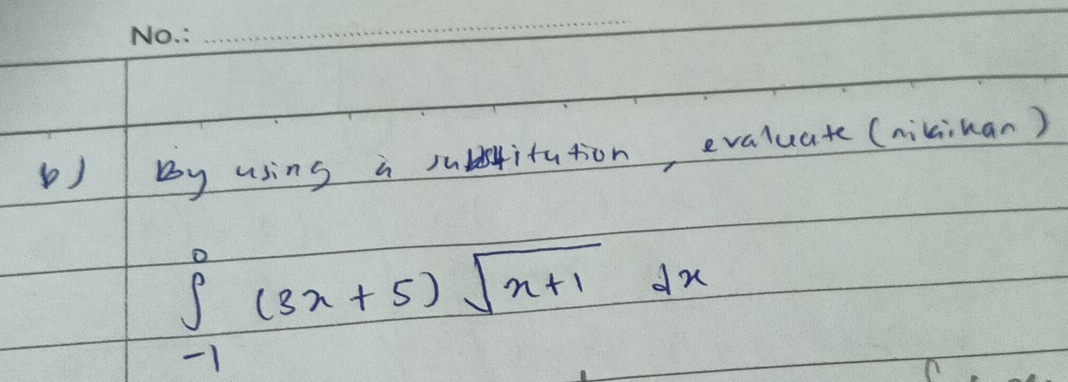 No.:
b) By using a substitution, evaluate (nikaikan)
0
∫ (3x + 5) √x+1 dx
-1